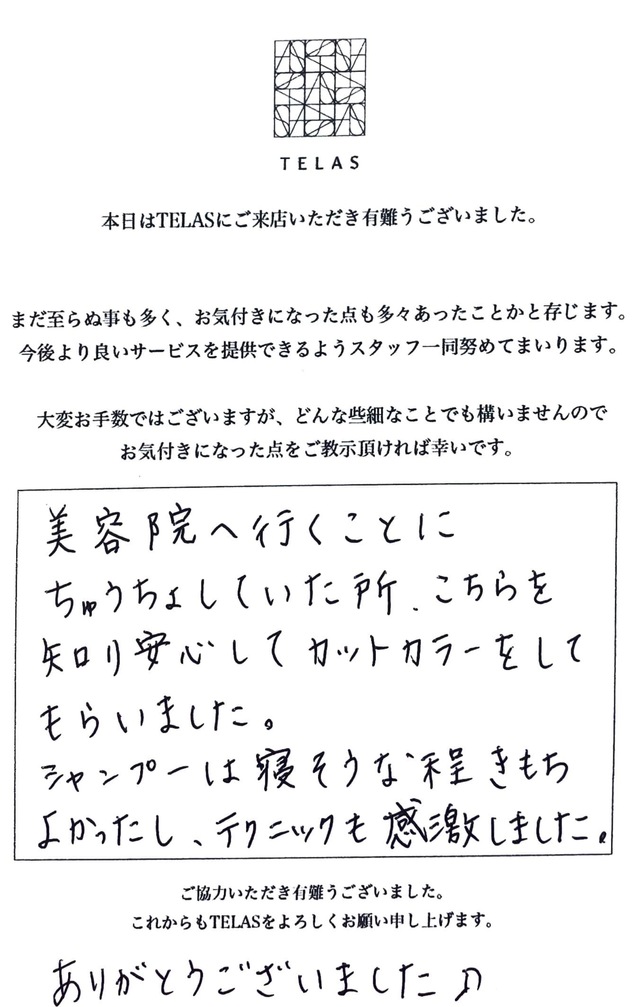 TELAS
本日はTELASにご来店いただき有難うございました。
まだ至らぬ事も多く、お気付きになった点も多々あったことかと存じます。
今後より良いサービスを提供できるようスタッフ一同努めてまいります。
大変お手数ではございますが、どんな些細なことでも構いませんので
お気付きになった点をご教示頂ければ幸いです。
美容院へ行くことに
ちゅうちょしていた所、こちらを
知り安心してカットカラーをして
もらいました。
シャンプーは寝そうな程きもち
よかったし、テクニックも感激しました。
ご協力いただき有難うございました。
これからもTELASをよろしくお願い申し上げます。
ありがとうございました♪